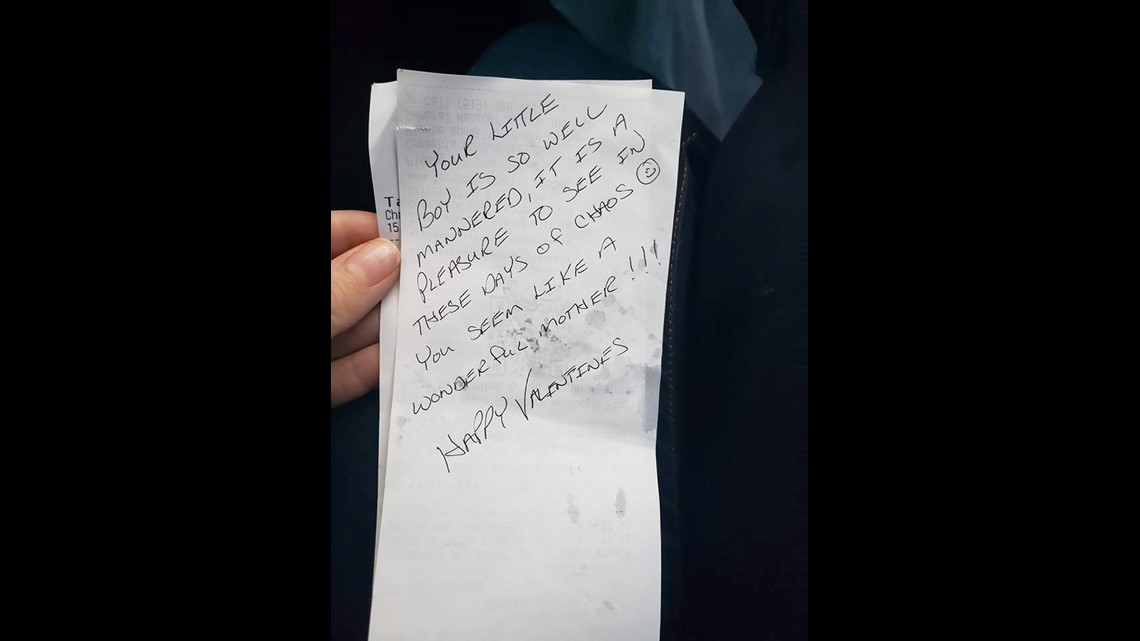 YOUR LITTLE
BOY IS SO WELL
MANNERED, IT IS A
PLEASURE TO SEE IN
THESE DAYS OF CHAOS ☺
YOU SEEM LIKE A
WONDERFUL MOTHER!!!
HAPPY VALENTINES
Ta
Ch
15